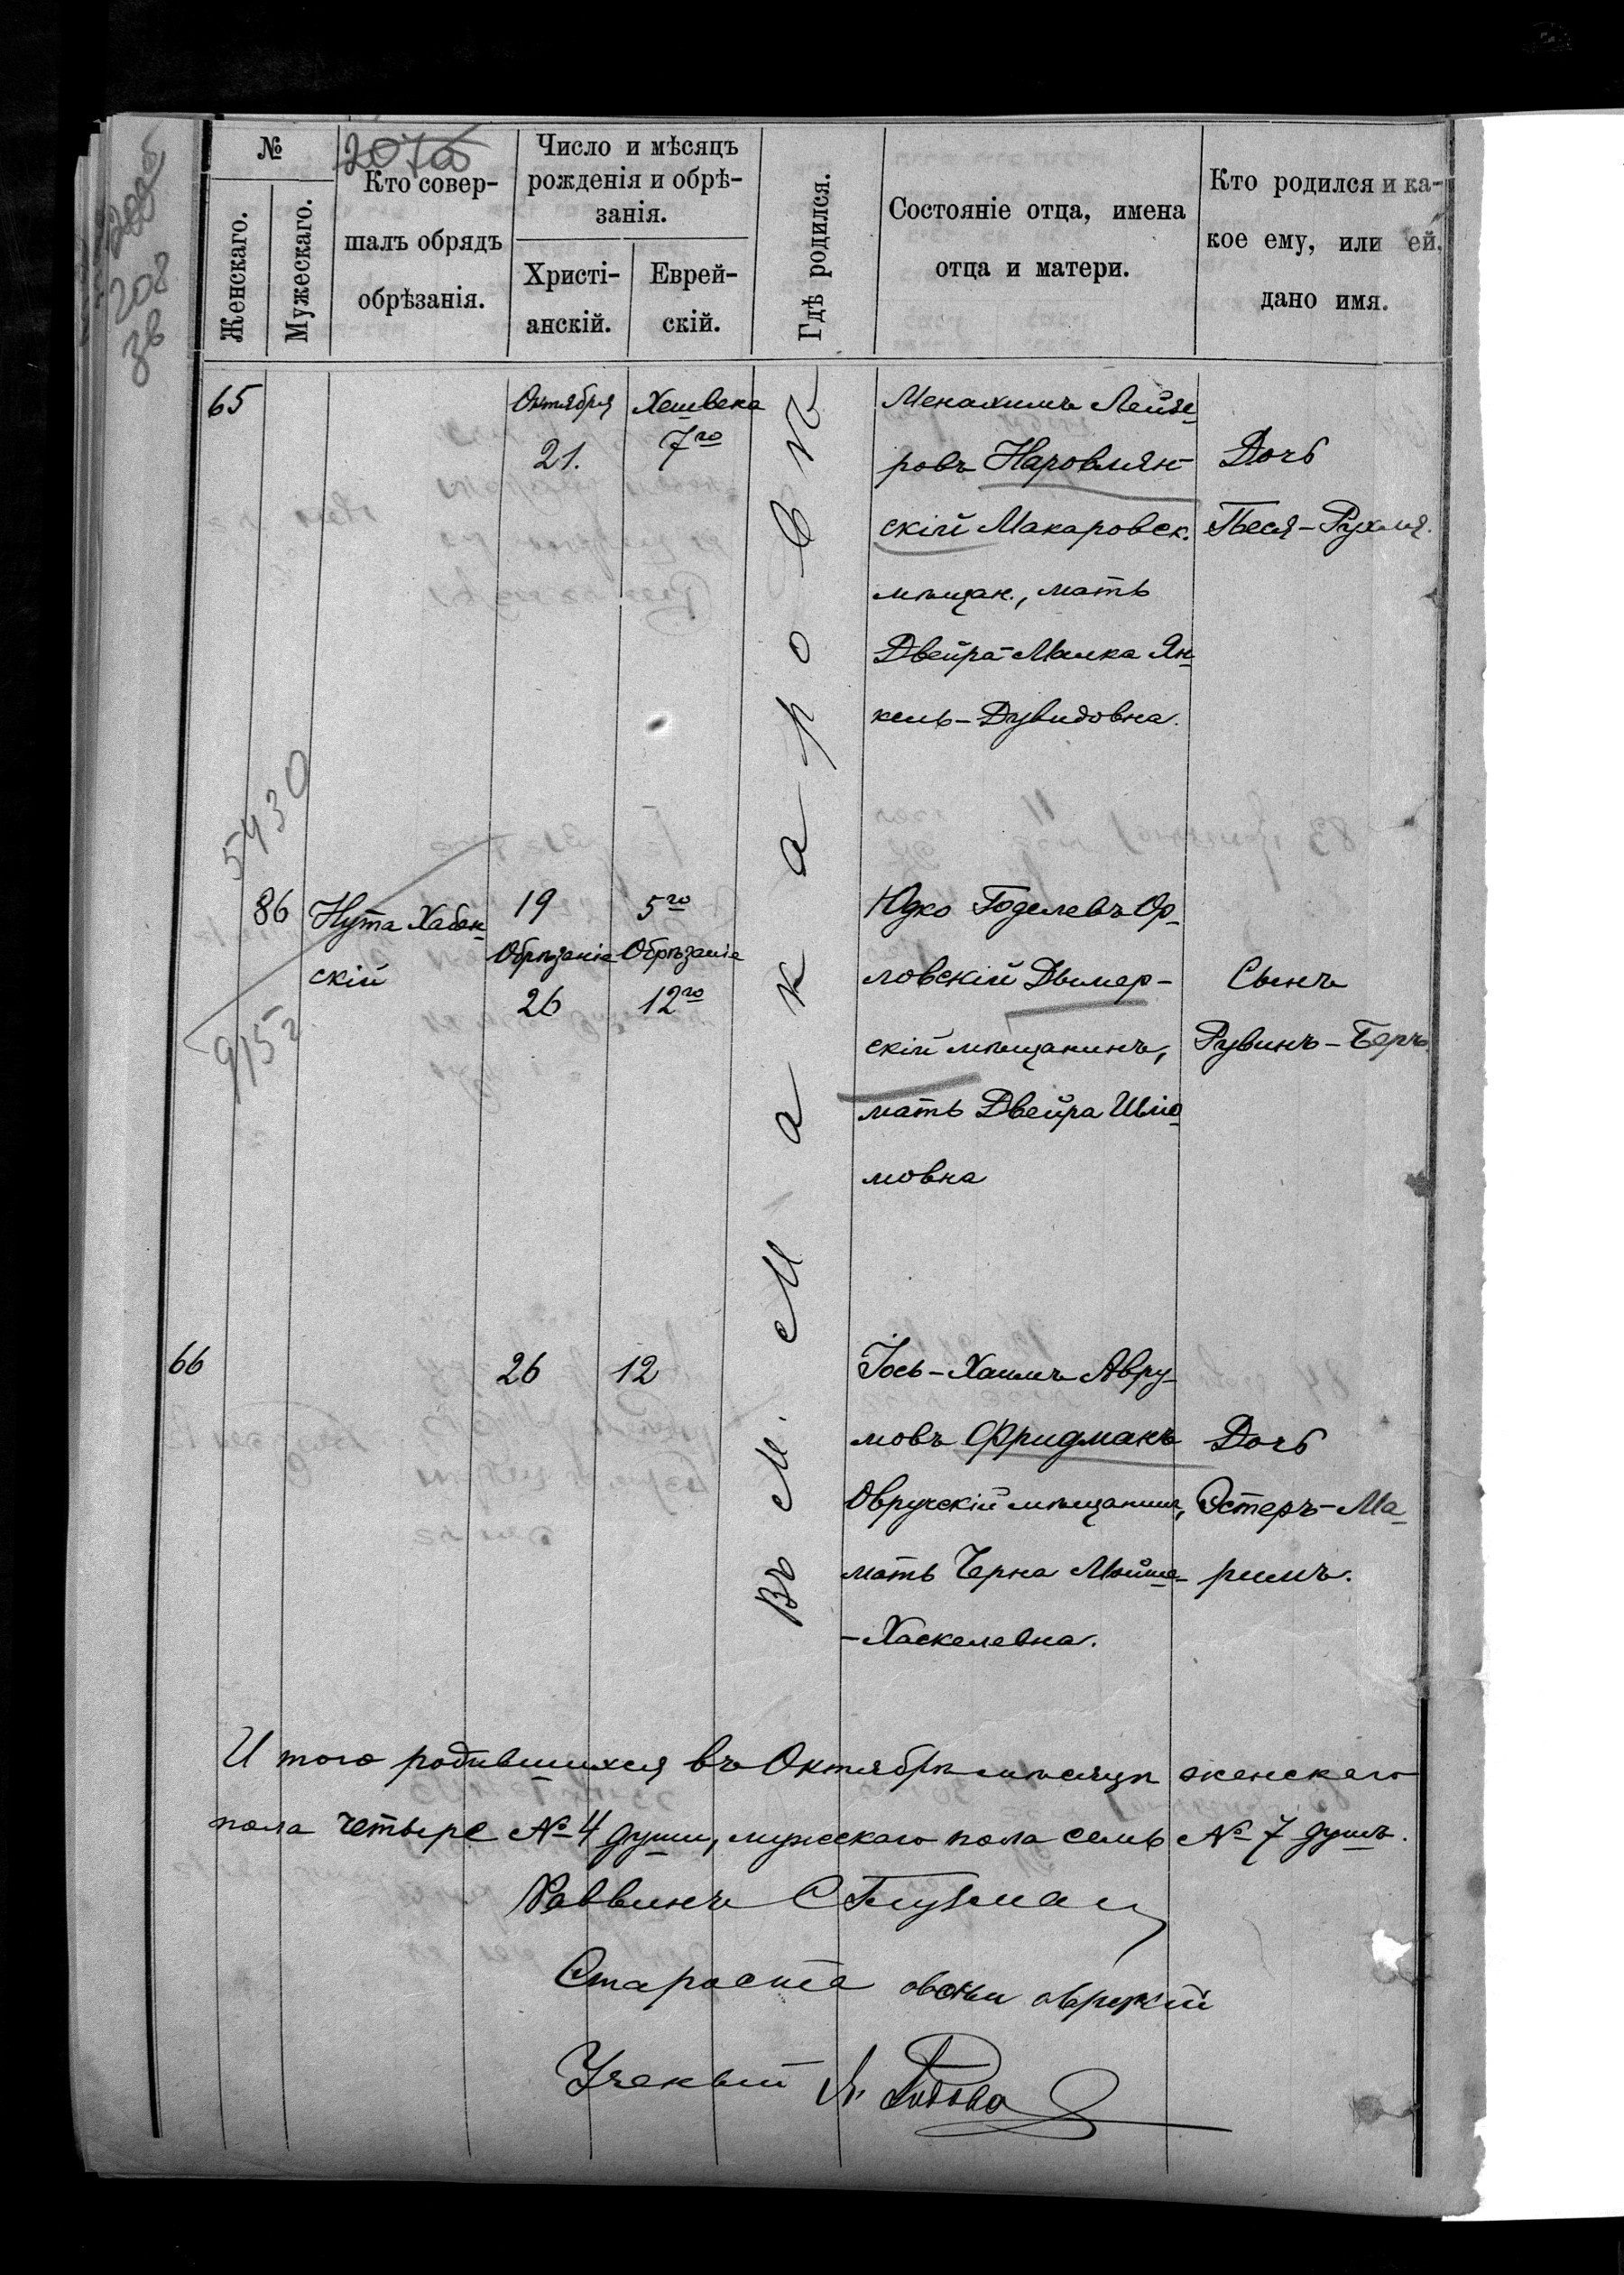 №
Женскаго.
Мужескаго.
Кто совер-
шалъ обрядъ
обрѣзанія.
Число и мѣсяцъ
рожденія и обрѣ-
занія.
Христі-
анскій.
Еврей-
скій.
Гдѣ родился.
Состояніе отца, имена
отца и матери.
Кто родился и ка-
кое ему, или ей,
дано имя.
208
зв
65
Октября
21.
Хешвена
7го
Менахимъ Лейзе-
ровъ Наровлян-
скій Макаровск.
мѣщан., мать
Двейра-Малка Ян-
кель-Дувидовна.
Дочь
Песя-Рухля.
Въ М. Макаровѣ
5430
9152
86
Нута Хабен-
скій
19
Обрѣзаніе
26
5го
Обрѣзаніе
12го
Юдко Годелевъ Ор-
ловскій Дымер-
скій мѣщанинъ,
мать Двейра Шлио-
мовна
Сынъ
Рувинъ-Беръ.
66
26
12
Іось-Хаимъ Авру-
мовъ Фридманъ
Овручскій мѣщанин,
мать Черна Мойше-
-Хаскелевна.
Дочь
Эстеръ-Ма-
римъ.
И того родившихся въ Октябрѣ мѣсяцѣ женскаго
пола четыре № 4 души, мужескаго пола семь № 7 душъ.
Раввинъ С Глузман
Староста
Ученый